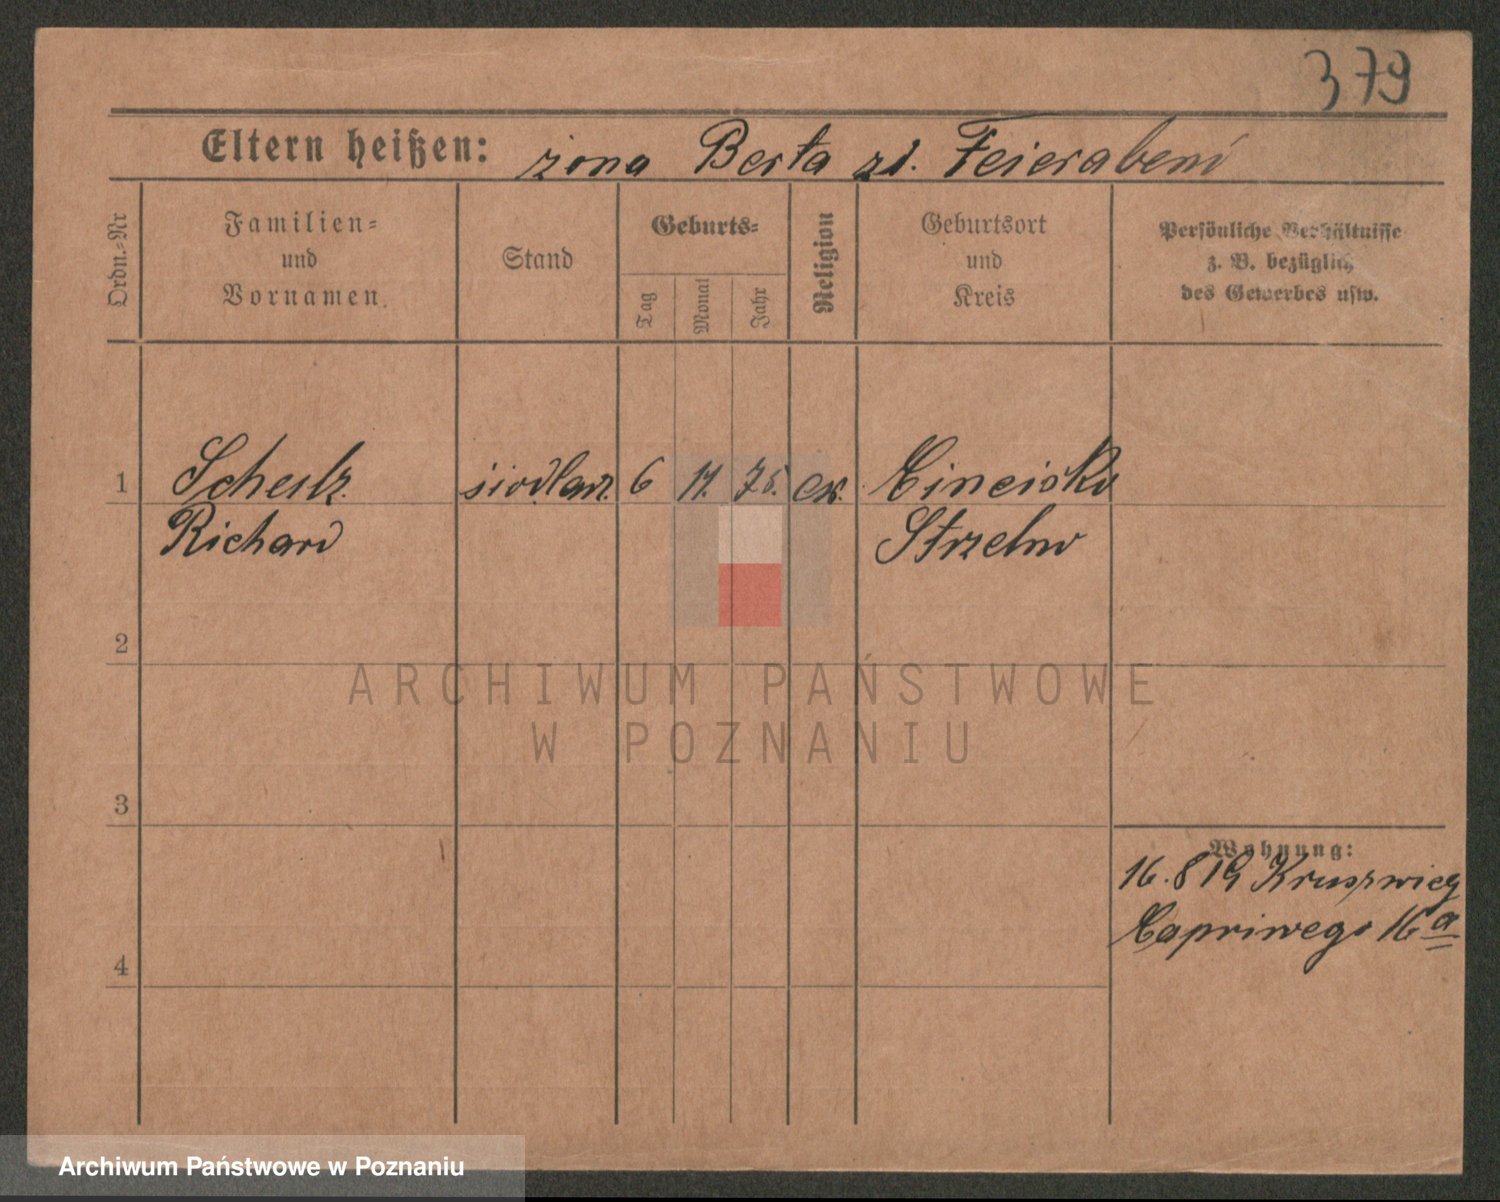 379
Eltern heißen: żona Berta zd. Feierabend
Ordn.-Nr
Familien-
und
Vornamen.
Stand
Geburts-
Tag
Monat
Jahr
Religion
Geburtsort
und
Kreis
Persönliche Verhältnisse
z. B. bezüglich
des Gewerbes usw.
1 Schulz siodlarz. 6 11. 75. ew.
Richard Strzelno
2
3
4
Wohnung:
16. 8 19 Kruszwicy
Capriwego 16a
ARCHIWUM PAŃSTWOWE
W POZNANIU
Archiwum Państwowe w Poznaniu